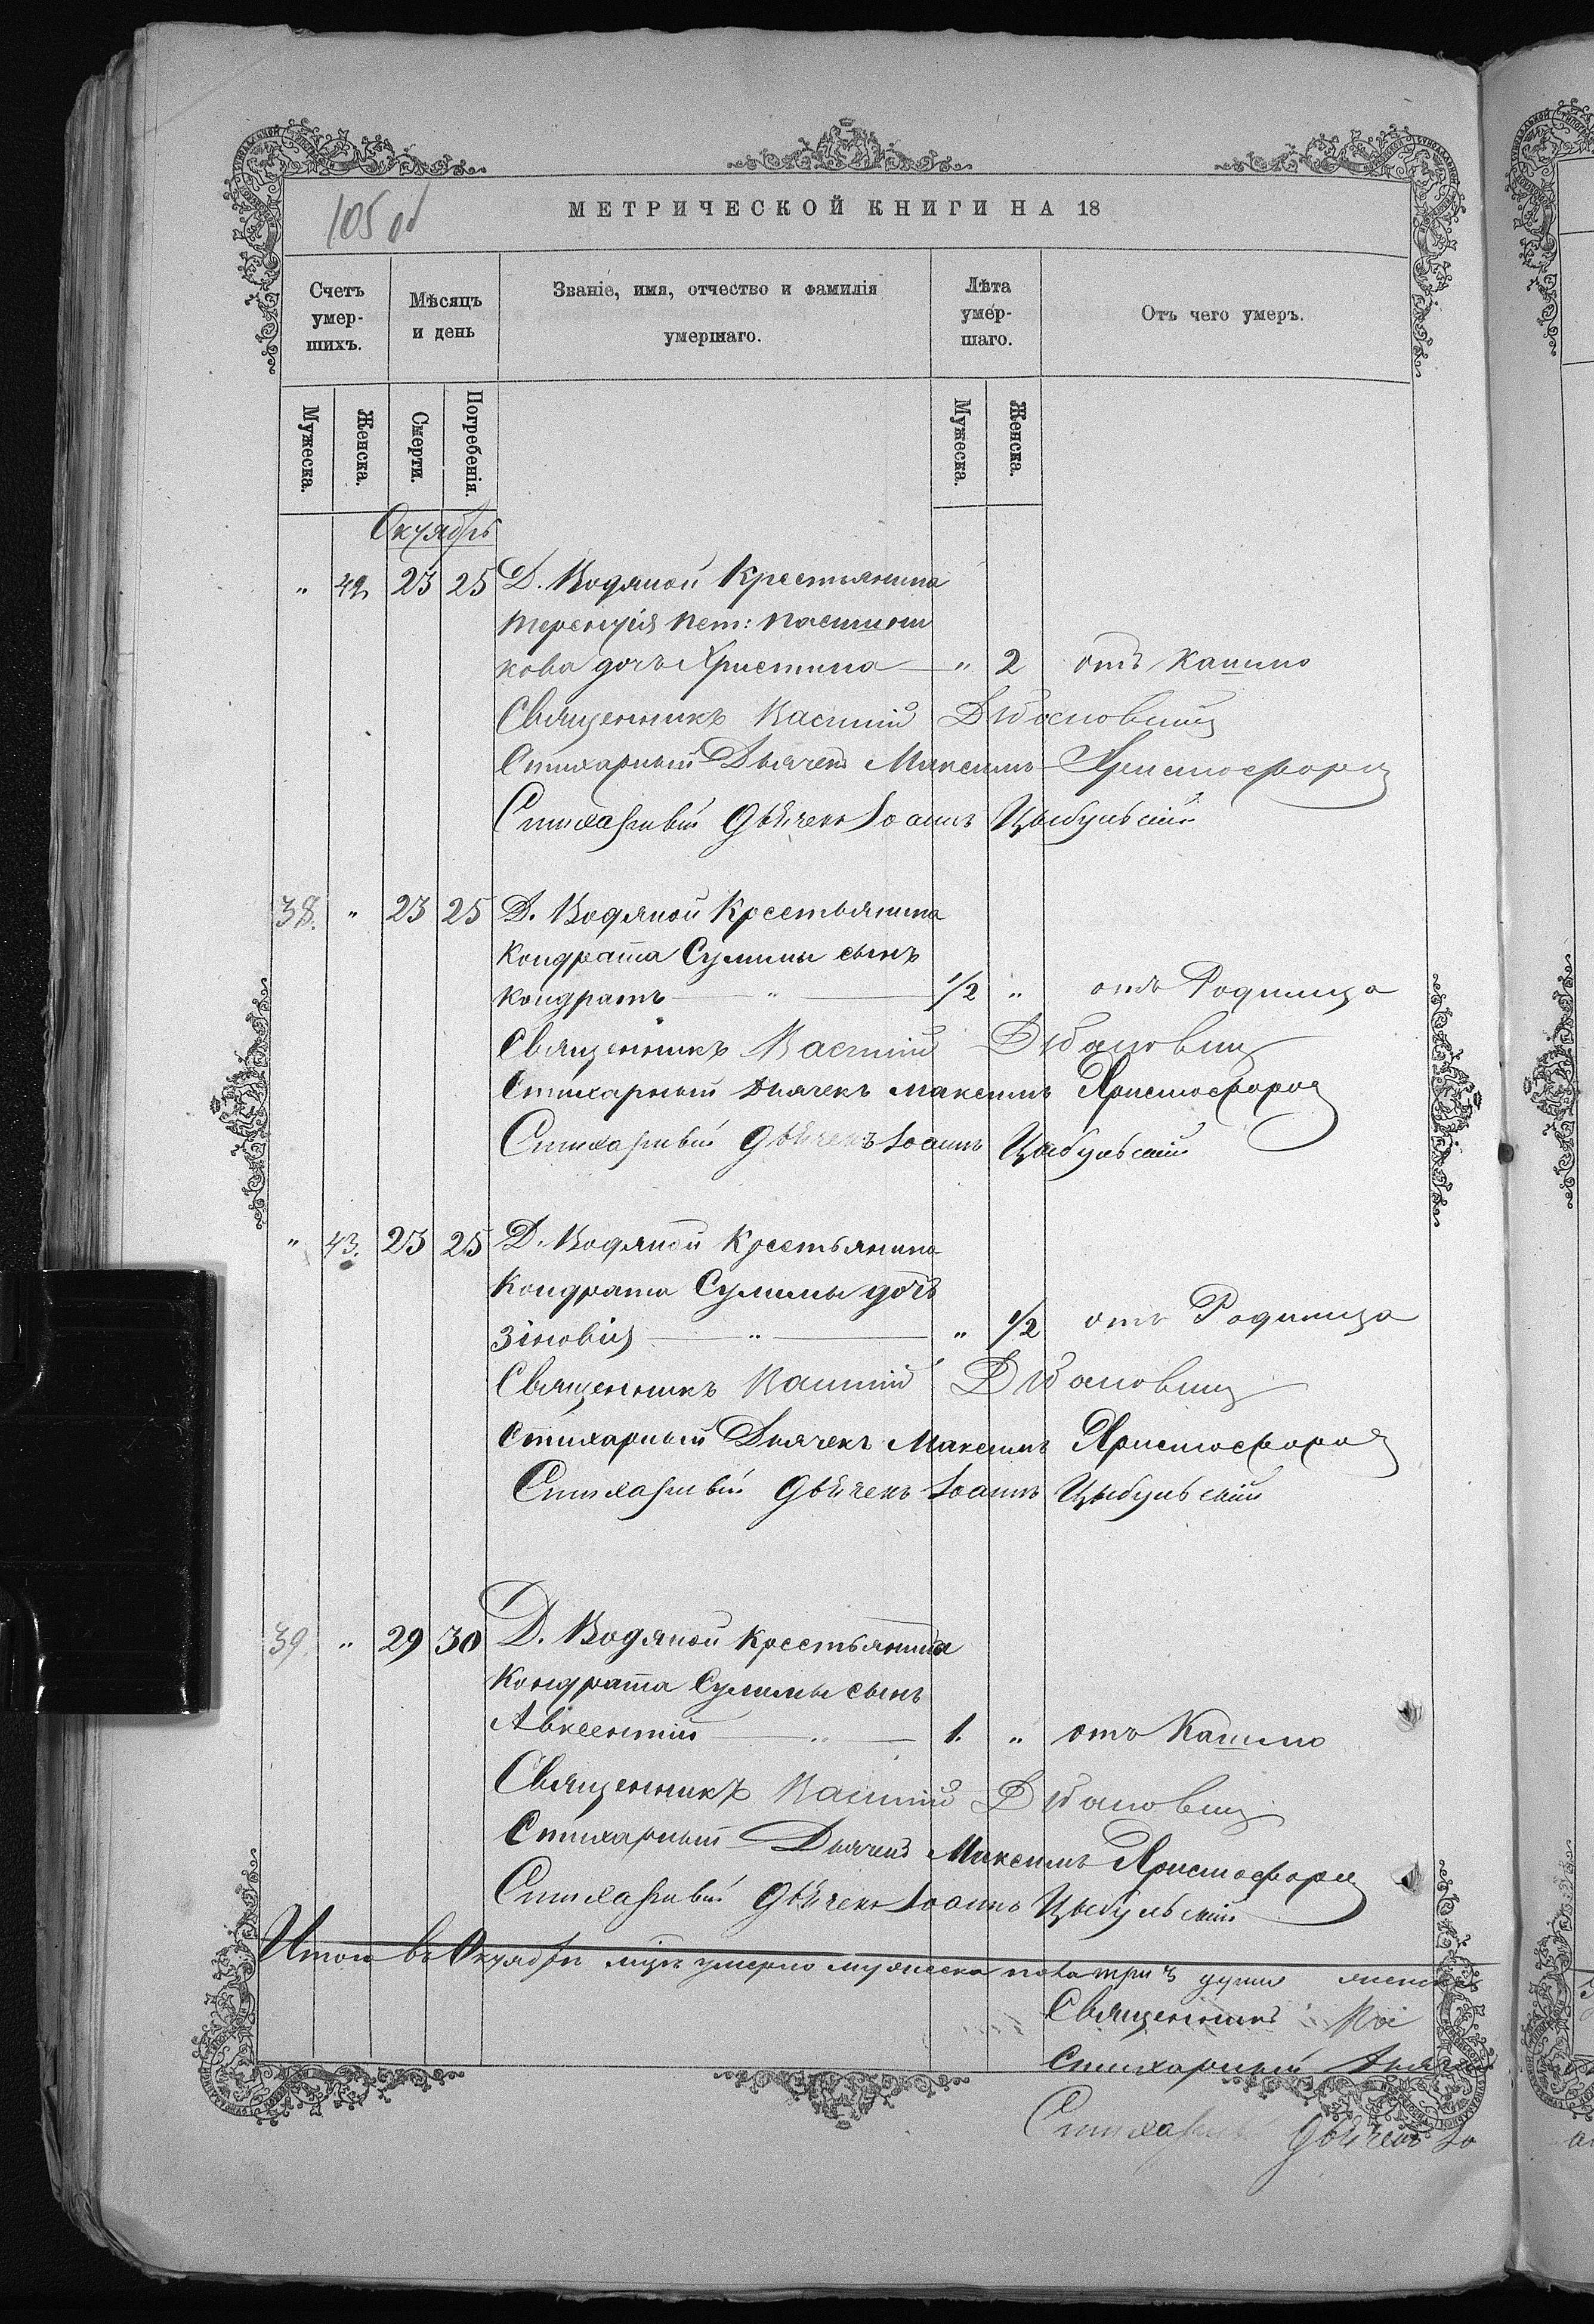 105 об
МЕТРИЧЕСКОЙ КНИГИ НА 18
Счетъ умер-шихъ.
Мѣсяцъ и день
Званіе, имя, отчество и фамилія умершаго.
Лѣта умер-шаго.
Отъ чего умеръ.
Мужеска.
Женска.
Смерти.
Погребенія.
Мужеска.
Женска.
Октябрь
" 42 23 25 Д. Водяной Крестьянина
Терентія Пет:
кова дочь Христина " 2 отъ Кашлю
Священникъ Василій
Стихарный Дьячекъ Максимъ Христофоров
Стихарный Дьячекъ Іоаннъ Цыбульскій
38. " 23 25 Д. Водяной Крестьянина
Кондрата Сулимы сынъ
Кондратъ " 1/2 " отъ Родимца
Священникъ Василій
Стихарный Дьячекъ Максимъ Христофоров
Стихарный Дьячекъ Іоаннъ Цыбульскій
" 43. 23 25 Д. Водяной Крестьянина
Кондрата Сулимы дочь
Зіновія " " 1/2 отъ Родимца
Священникъ Василій
Стихарный Дьячекъ Максимъ Христофоров
Стихарный Дьячекъ Іоаннъ Цыбульскій
39. " 29 30 Д. Водяной Крестьянина
Кондрата Сулимы сынъ
Авксентій " 1. " отъ Кашлю
Священникъ Василій
Стихарный Дьячекъ Максимъ Христофоров
Стихарный Дьячекъ Іоаннъ Цыбульскій
Итого въ Октябрѣ мцѣ умерло мужеска пола три души женска
Священникъ
Стихарный Дьяче
Стихарный Дьячекъ Іо